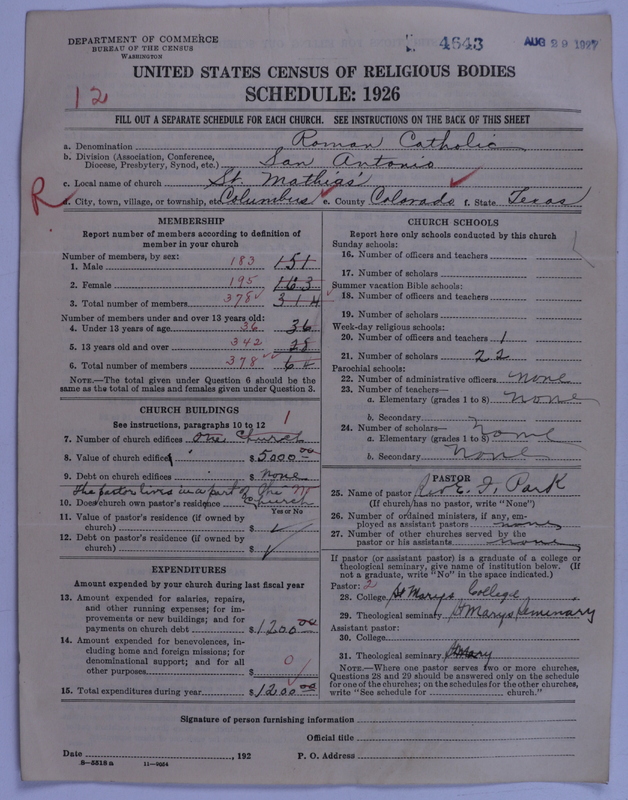 DEPARTMENT OF COMMERCE
BUREAU OF THE CENSUS
WASHINGTON
4643
AUG 29 1927
UNITED STATES CENSUS OF RELIGIOUS BODIES
12
SCHEDULE: 1926
FILL OUT A SEPARATE SCHEDULE FOR EACH CHURCH. SEE INSTRUCTIONS ON THE BACK OF THIS SHEET
a. Denomination Roman Catholic
b. Division (Association, Conference, Diocese, Presbytery, Synod, etc.) San Antonio
c. Local name of church St. Mathias'
R
d. City, town, village, or township, etc Columbus e. County Colorado f. State Texas
MEMBERSHIP
Report number of members according to definition of
member in your church
Number of members, by sex:
1. Male 183 151
2. Female 195 163
3. Total number of members 378 314
Number of members under and over 13 years old:
4. Under 13 years of age 36 36
5. 13 years old and over 342 28
6. Total number of members 378 64
NOTE.—The total given under Question 6 should be the
same as the total of males and females given under Question 3.
CHURCH BUILDINGS
See instructions, paragraphs 10 to 12
1
7. Number of church edifices one Church
8. Value of church edifice $ 5000.00
9. Debt on church edifices $ None
The pastor lives in a part of the church
10. Does church own pastor's residence No
Yes or No
11. Value of pastor's residence (if owned by
church) $
12. Debt on pastor's residence (if owned by
church) $
EXPENDITURES
Amount expended by your church during last fiscal year
13. Amount expended for salaries, repairs,
and other running expenses; for im-
provements or new buildings; and for
payments on church debt $ 1200.00
14. Amount expended for benevolences, in-
cluding home and foreign missions; for
denominational support; and for all
other purposes $ 0
15. Total expenditures during year $ 1200.00
CHURCH SCHOOLS
Report here only schools conducted by this church
Sunday schools:
16. Number of officers and teachers
17. Number of scholars
Summer vacation Bible schools:
18. Number of officers and teachers
19. Number of scholars
Week-day religious schools:
20. Number of officers and teachers 1
21. Number of scholars 22
Parochial schools:
22. Number of administrative officers none
23. Number of teachers—
a. Elementary (grades 1 to 8) none
b. Secondary
24. Number of scholars—
a. Elementary (grades 1 to 8) none
b. Secondary none
PASTOR
25. Name of pastor Rev E. F. Park
(If church has no pastor, write "None")
26. Number of ordained ministers, if any, em-
ployed as assistant pastors none
27. Number of other churches served by the
pastor or his assistants none
If pastor (or assistant pastor) is a graduate of a college or
theological seminary, give name of institution below. (If
not a graduate, write "No" in the space indicated.)
Pastor: 2
28. College St Marys College
29. Theological seminary St Marys Seminary
Assistant pastor:
30. College
31. Theological seminary St Mary
NOTE.—Where one pastor serves two or more churches,
Questions 28 and 29 should be answered only on the schedule
for one of the churches; on the schedules for the other churches,
write "See schedule for church."
Signature of person furnishing information
Official title
Date , 192 P. O. Address
8-5518a 11-9054